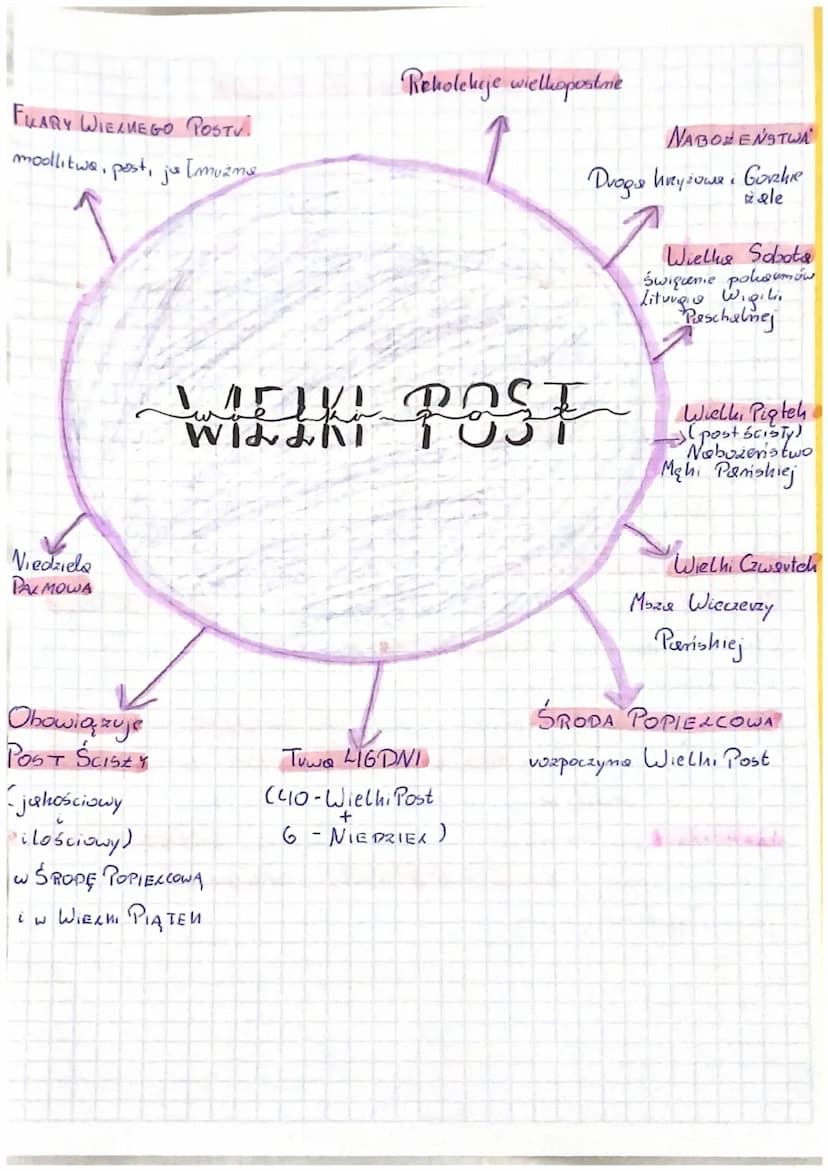 Rekolekcje wielkopostne
FILARY WIELKIEGO POSTU:
modlitwa, post, jałmużna
NABOŻEŃSTWA
Droga krzyżowa i Gorzkie
żale
Wielka Sobota
święcenie pokarmów
Liturgia Wigilii
Paschalnej
WIELKI POST
wielki post
Wielki Piątek
(post ścisły)
Nabożeństwo
Męki Pańskiej
Wielki Czwartek
Msza Wieczerzy
Pańskiej
Niedziela
PALMOWA
ŚRODA POPIELCOWA
rozpoczyna Wielki Post
Obowiązuje
POST ŚCISŁY
(jakościowy
i
ilościowy)
w ŚRODĘ POPIELCOWĄ
i w WIELKI PIĄTEK
Trwa 46 DNI
(40 - Wielki Post
+
6 - NIEDZIEL)